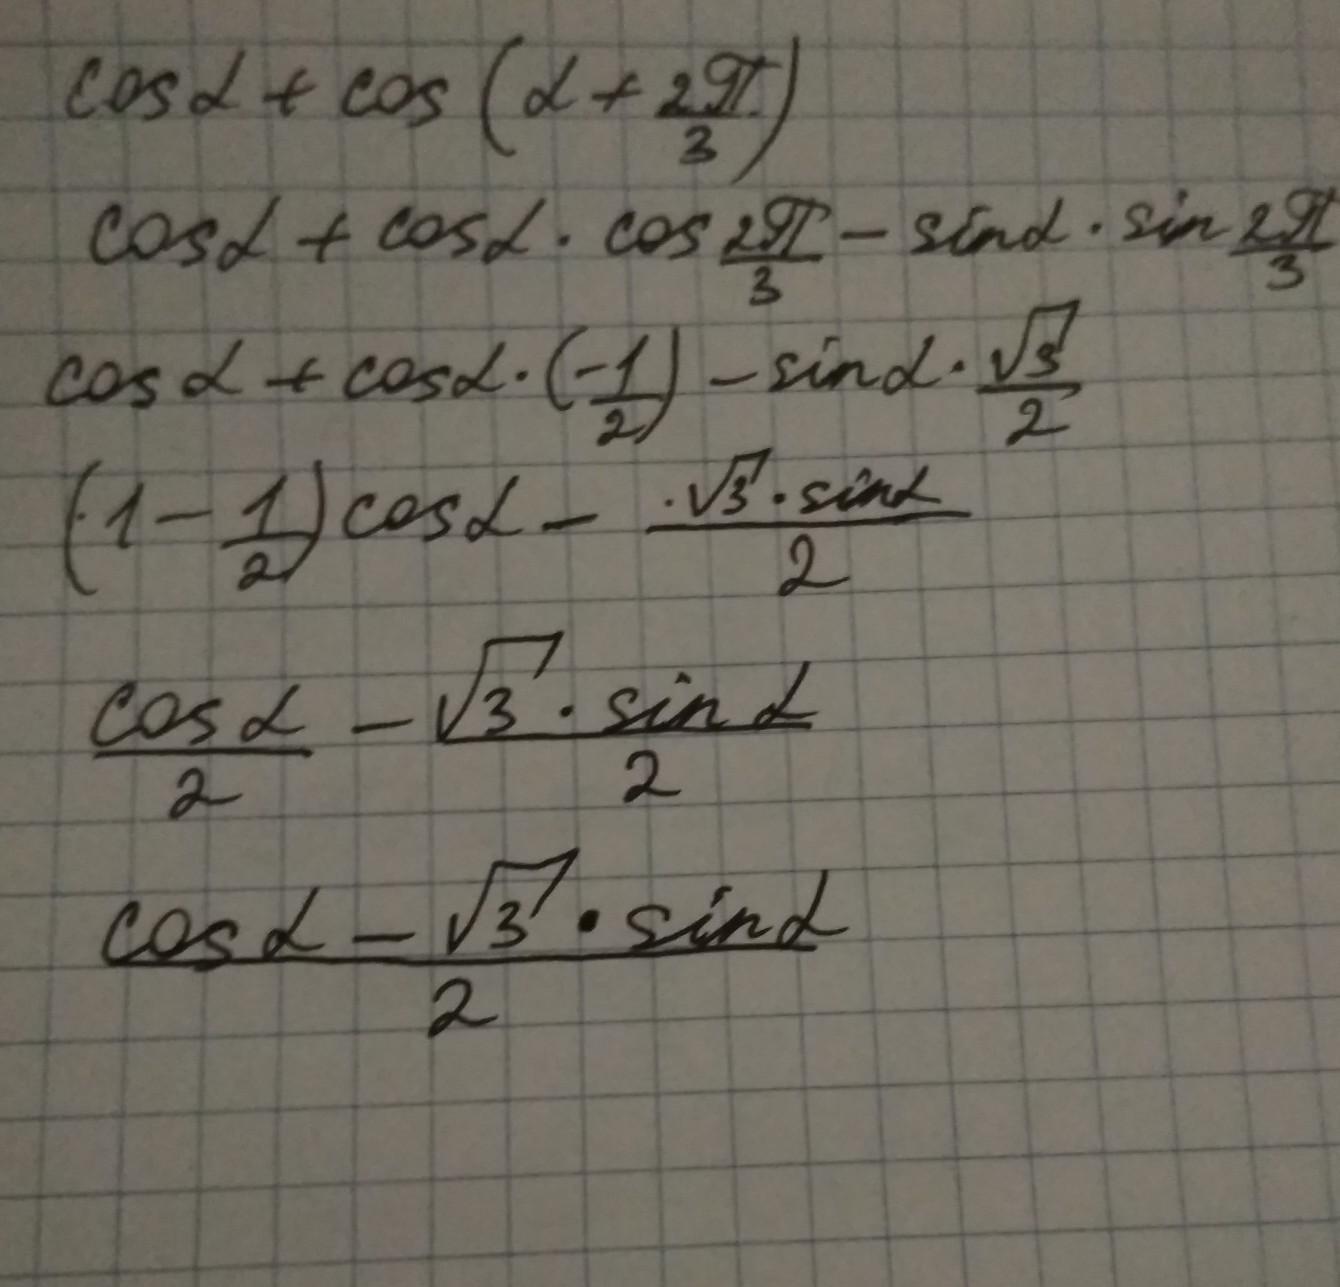 cosα + cos (α + 2π/3)
cosα + cosα · cos 2π/3 - sinα · sin 2π/3
cosα + cosα · (-1/2) - sinα · √3/2
(1 - 1/2) cosα - ·√3 · sinα/2
cosα/2 - √3 · sinα/2
cosα - √3 · sinα/2